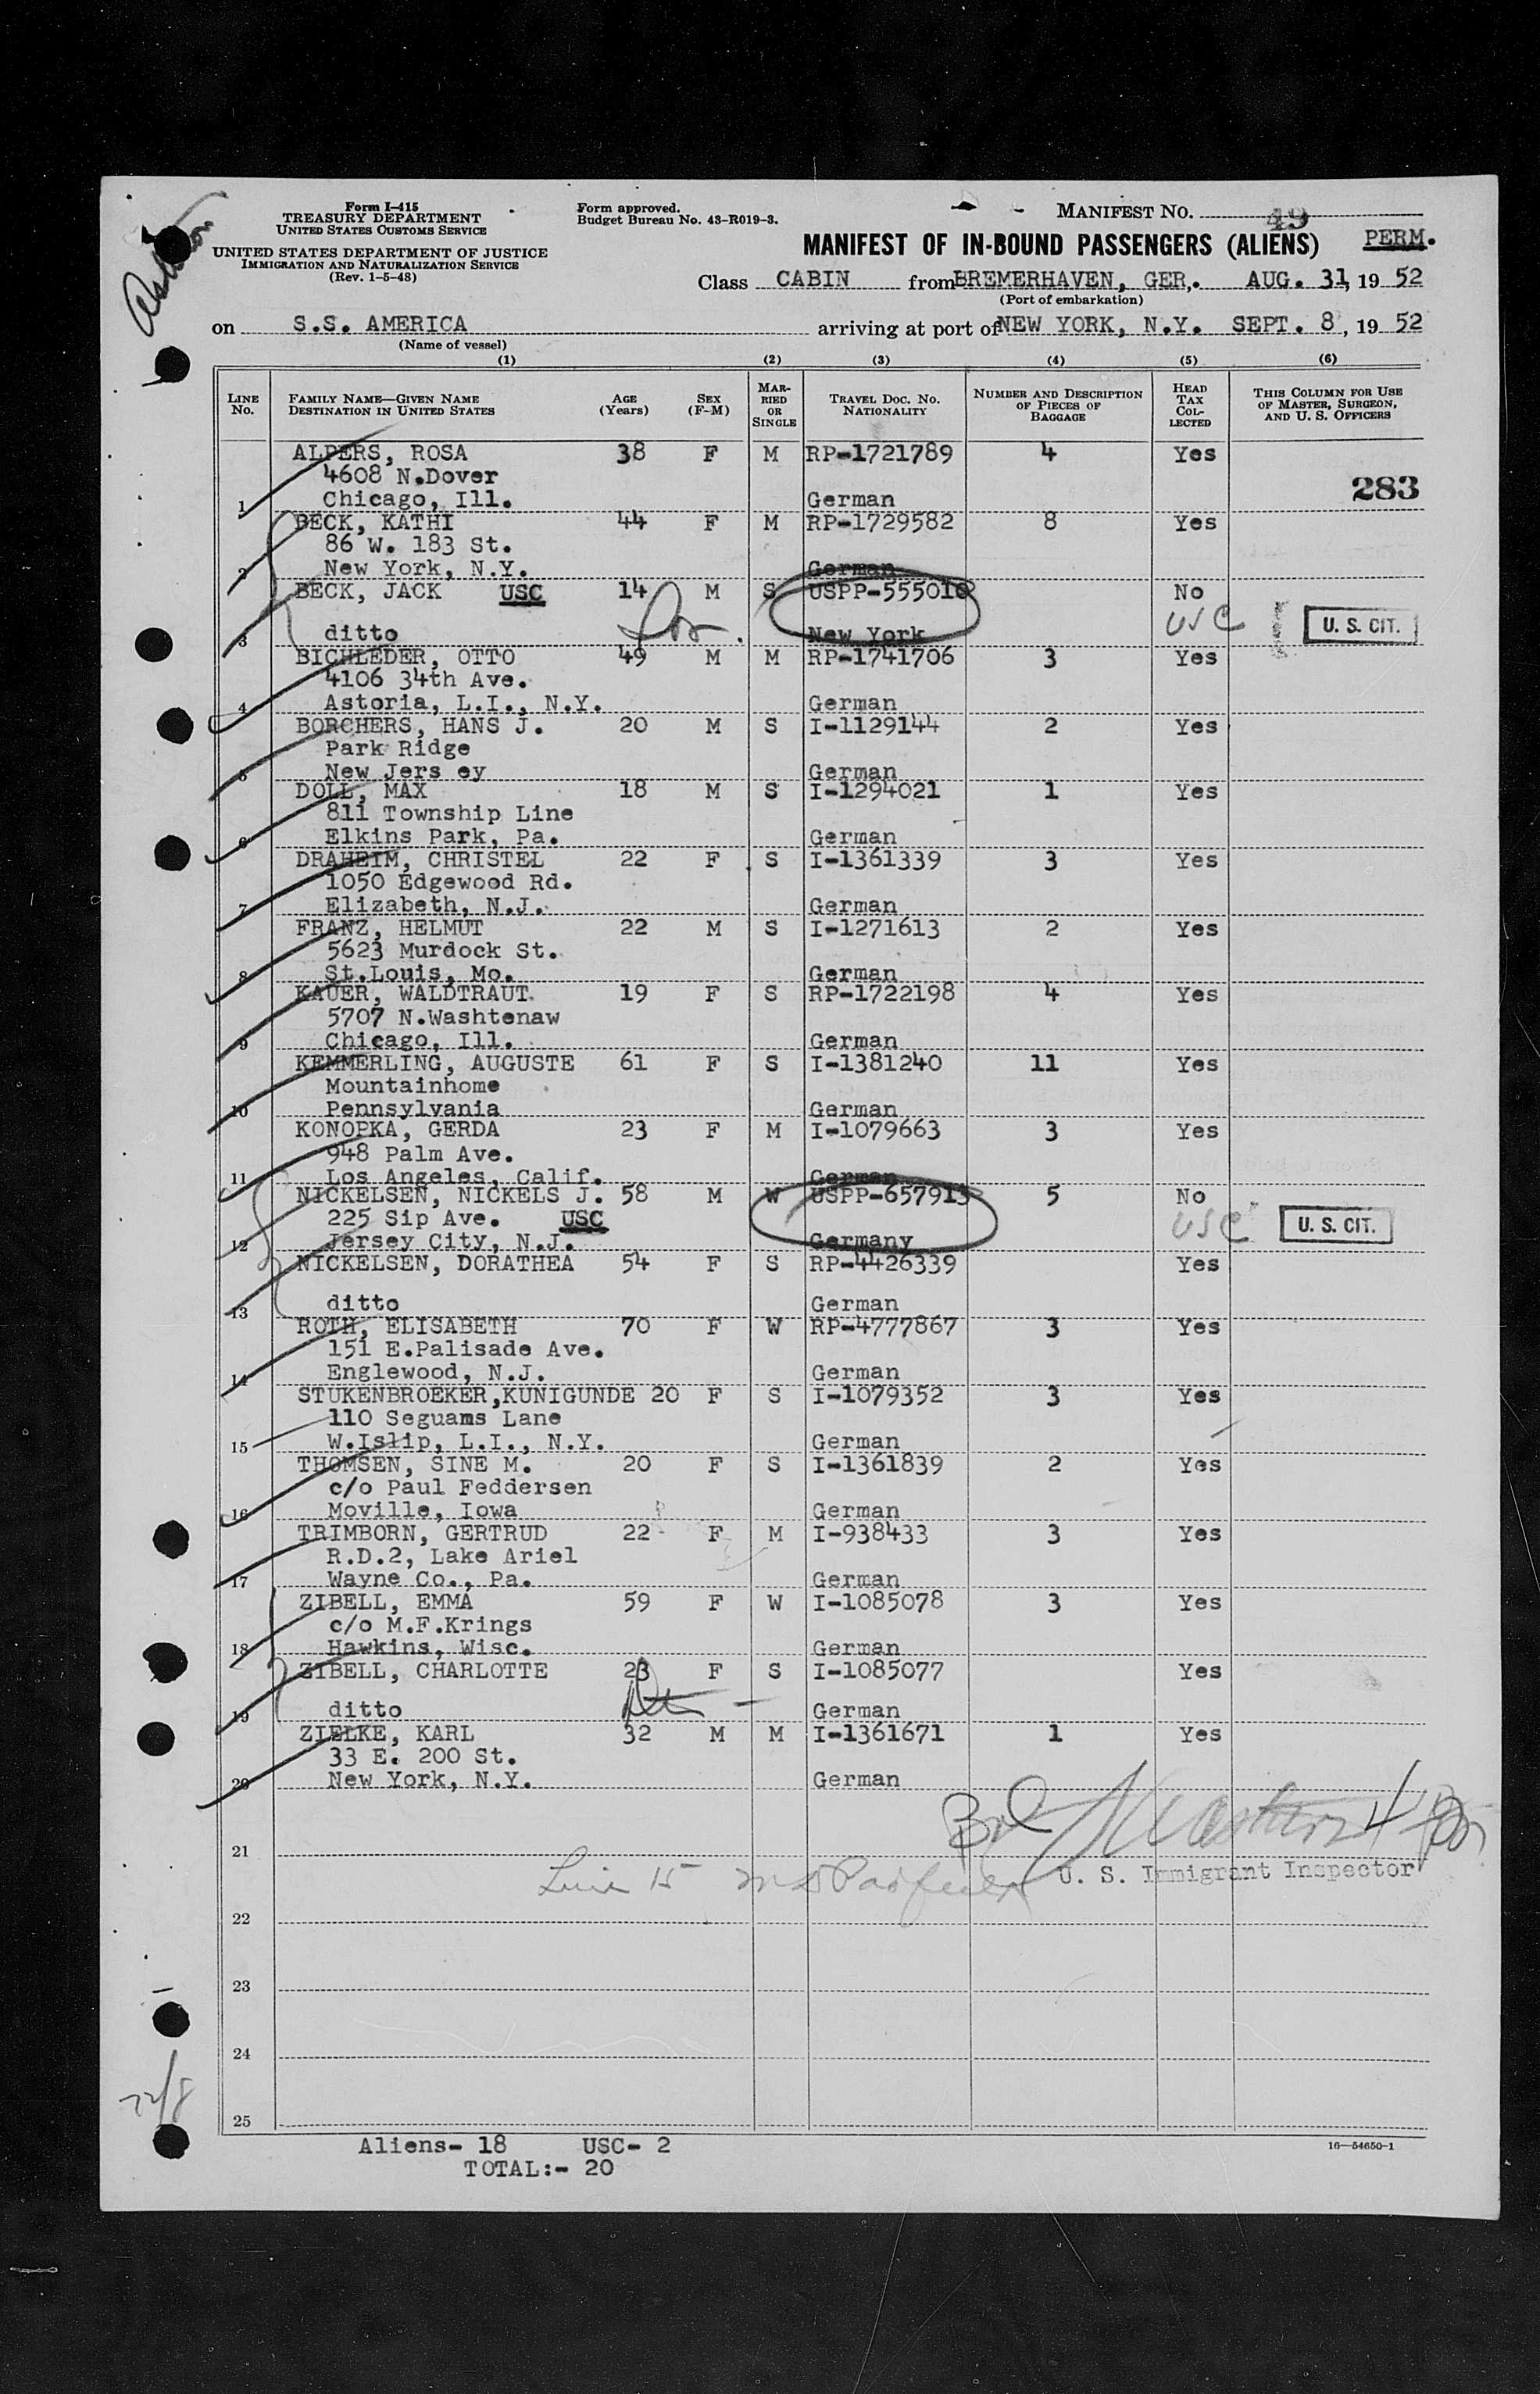 Form I-415
TREASURY DEPARTMENT
UNITED STATES CUSTOMS SERVICE
UNITED STATES DEPARTMENT OF JUSTICE
IMMIGRATION AND NATURALIZATION SERVICE
(Rev. 1-5-48)
Form approved.
Budget Bureau No. 43-R019-3.
MANIFEST NO. 49
MANIFEST OF IN-BOUND PASSENGERS (ALIENS) PERM.
Class CABIN from BREMERHAVEN, GER,. AUG. 31, 19 52
(Port of embarkation)
on S.S. AMERICA arriving at port of NEW YORK, N.Y. SEPT. 8, 19 52
(Name of vessel)
(1) (2) (3) (4) (5) (6)
LINE NO. FAMILY NAME—GIVEN NAME DESTINATION IN UNITED STATES AGE (Years) SEX (F-M) MARRIED OR SINGLE TRAVEL DOC. NO. NATIONALITY NUMBER AND DESCRIPTION OF PIECES OF BAGGAGE HEAD TAX COLLECTED THIS COLUMN FOR USE OF MASTER, SURGEON, AND U. S. OFFICERS
ALPERS, ROSA 38 F M RP-1721789 4 Yes
4608 N.Dover 283
1 Chicago, Ill. German
BECK, KATHI 44 F M RP-1729582 8 Yes
86 W. 183 St.
2 New York, N.Y. German
BECK, JACK USC 14 M S USPP-555010 No
USC U. S. CIT.
3 ditto New York
BICHLEDER, OTTO 49 M M RP-1741706 3 Yes
4106 34th Ave.
4 Astoria, L.I., N.Y. German
BORCHERS, HANS J. 20 M S I-1129144 2 Yes
Park Ridge
5 New Jers ey German
DOLL, MAX 18 M S I-1294021 1 Yes
811 Township Line
6 Elkins Park, Pa. German
DRAHEIM, CHRISTEL 22 F S I-1361339 3 Yes
1050 Edgewood Rd.
7 Elizabeth, N.J. German
FRANZ, HELMUT 22 M S I-1271613 2 Yes
5623 Murdock St.
8 St.Louis, Mo. German
KAUER, WALDTRAUT 19 F S RP-1722198 4 Yes
5707 N.Washtenaw
9 Chicago, Ill. German
KEMMERLING, AUGUSTE 61 F S I-1381240 11 Yes
Mountainhome
10 Pennsylvania German
KONOPKA, GERDA 23 F M I-1079663 3 Yes
948 Palm Ave.
11 Los Angeles, Calif. German
NICKELSEN, NICKELS J. 58 M W USPP-657913 5 No
225 Sip Ave. USC USC U. S. CIT.
12 Jersey City, N.J. Germany
NICKELSEN, DORATHEA 54 F S RP-4426339 Yes
13 ditto German
ROTH, ELISABETH 70 F W RP-4777867 3 Yes
151 E.Palisade Ave.
14 Englewood, N.J. German
STUKENBROEKER,KUNIGUNDE 20 F S I-1079352 3 Yes
110 Seguams Lane
15 W.Islip, L.I., N.Y. German
THOMSEN, SINE M. 20 F S I-1361839 2 Yes
c/o Paul Feddersen
16 Moville, Iowa German
TRIMBORN, GERTRUD 22 F M I-938433 3 Yes
R.D.2, Lake Ariel
17 Wayne Co., Pa. German
ZIBELL, EMMA 59 F W I-1085078 3 Yes
c/o M.F.Krings
18 Hawkins, Wisc. German
ZIBELL, CHARLOTTE 23 F S I-1085077 Yes
19 ditto German
ZIELKE, KARL 32 M M I-1361671 1 Yes
33 E. 200 St.
20 New York, N.Y. German
21
Line 15 U. S. Immigrant Inspector
22
23
24
25
Aliens- 18 USC- 2
TOTAL:- 20
16—54650-1